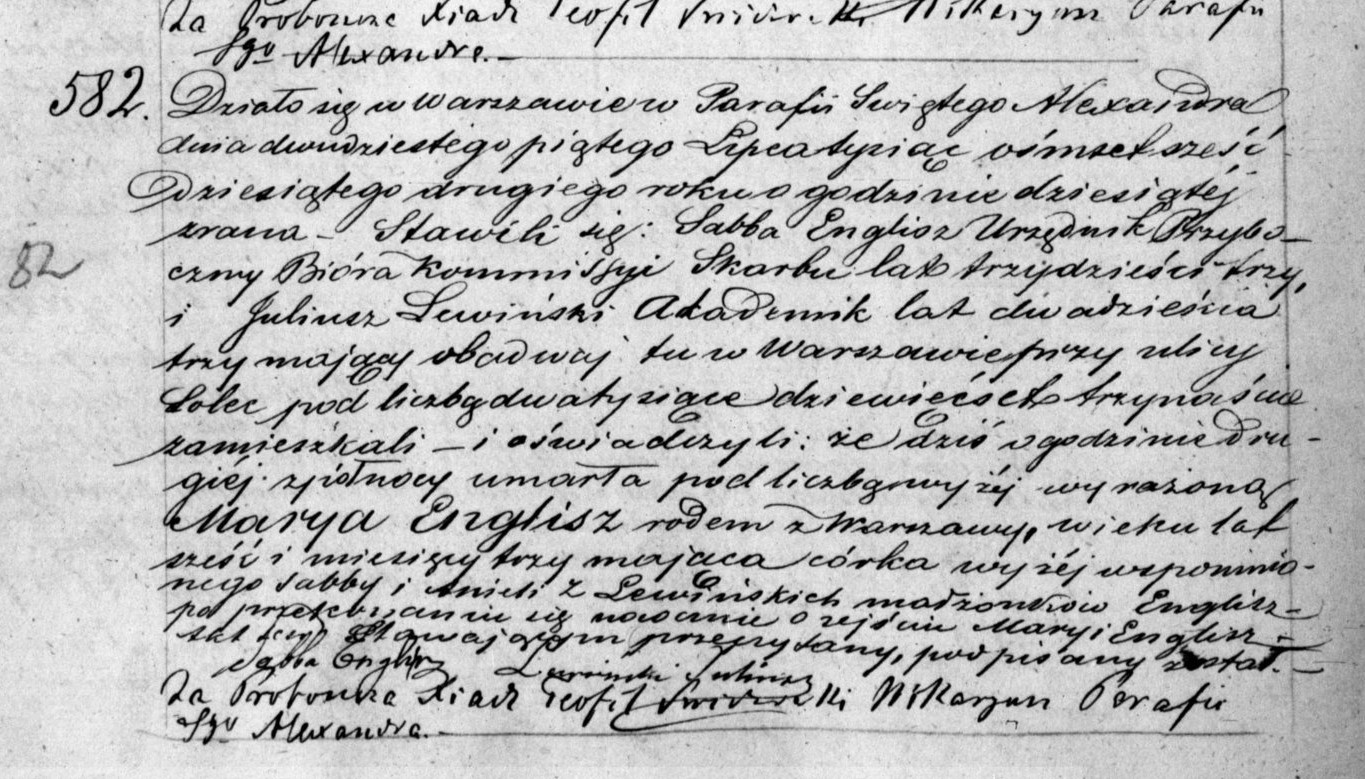 Za Proboszcza Xiądz Teofil Wikaryusz Parafii
Sgo Alexandra.—
582. Działo się w Warszawie w Parafii Swiętego Alexandra
dnia dwudziestego piątego Lipca tysiąc ośmset sześć
dziesiątego drugiego roku o godzinie dziesiątéj
zrana – Stawili się: Sabba Englisz Urzędnik Przybo–
czny Bióra Kommissyi Skarbu lat trzydzieści trzy,
82
i Juliusz Lewiński Akademik lat dwadzieścia
trzy mający obadwaj tu w Warszawie przy ulicy
Solec pod liczbą dwa tysiące dziewięćset trzynaście
zamieszkali – i oświadczyli: że dziś o godzinie dru–
giéj z północy umarła pod liczbą wyżéj wyrażoną
Marya Englisz rodem z Warszawy, wieku lat
sześć i miesięcy trzy mająca córka wyżéj wspomnio–
nego Sabby i Anieli z Lewińskich małżonków Englisz–
po przekonaniu się naocznie o zejściu Maryi Englisz–
Akt ten Stawającym przeczytany, podpisany został.–
Sabba Englisz Lewiński Juliusz
Za Proboszcza Xiądz Teofil Wikaryusz Parafii
Sgo Alexandra.–